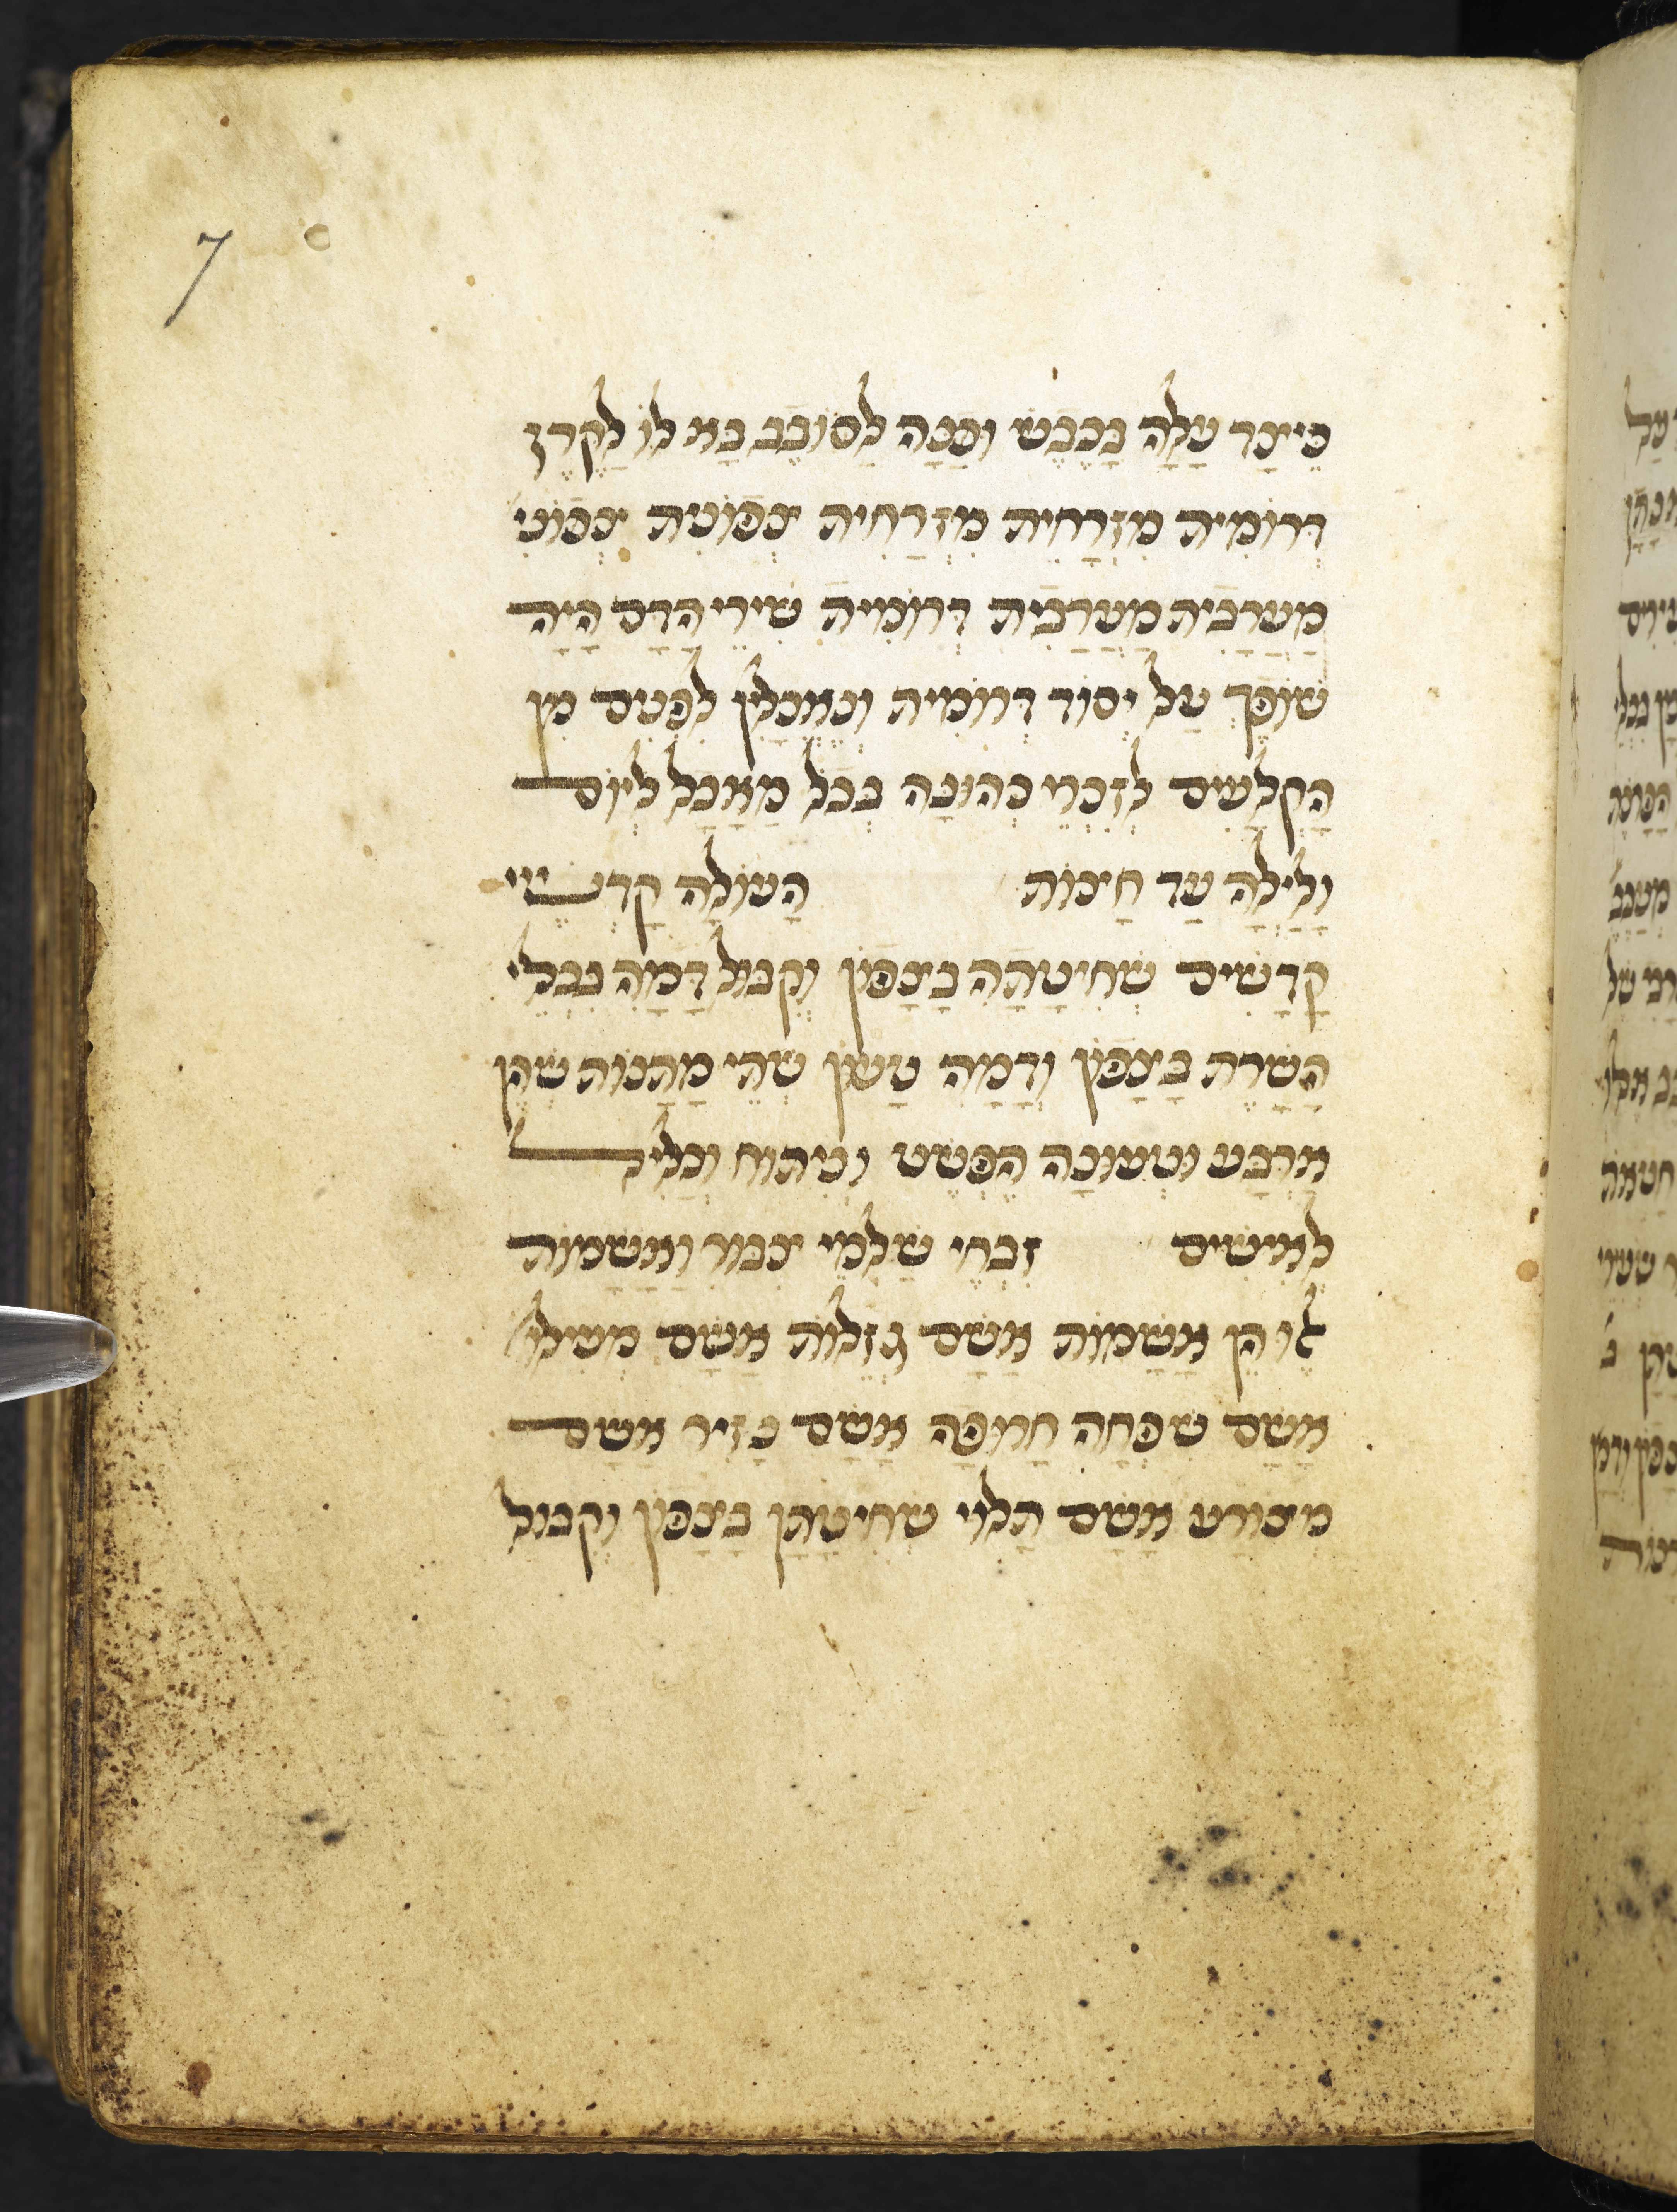 7
כֵּיצַד עָלָה בַכֶּבֶשׁ וּפָנָה לַסּוֹבֵב בָּא לוֹ לַקֶרֶן
דְּרוֹמִית מִזְרָחִית מִזְרָחִית צְפוֹנִית צְפוֹנִי
מַעֲרָבִית מַעֲרָבִית דְּרוֹמִית שִׁירֵי הַדָּם הָיָה
שׁוֹפֵךְ עַל יְסוֹד דְּרוֹמִית וְנֶאֱכָלִין לִפְנִים מִן
הַקְלָעִים לְזִכְרֵי כְהוּנָּה בְּכֹל מַאֲכָל לְיוֹם
וָלַיְלָה עַד חֲצוֹת הָעוֹלָה קָדְשֵׁי
קָדָשִׁים שְׁחִיטָתָהּ בַּצָּפוֹן וְקִבּוּל דָּמָהּ בִּכְלִי
הַשָּׁרֵת בַּצָּפוֹן וְדָמָהּ טָעוּן שְׁתֵּי מַתָּנוֹת שֶׁהֶן
אַרְבַּע וּטְעוּנָה הֶפְשֵׁט וְנִתּוּחַ וְכָלִיל
לָאִישִׁים זִבְחֵי שַׁלְמֵי צִבּוּר וַאֲשָׁמוֹת
אֵלּוּ הֵן אֲשָׁמוֹת אֲשַׁם גְּזֵלוֹת אֲשַׁם מְעִילוֹ
אֲשַׁם שִׁפְחָה חֲרוּפָה אֲשַׁם נָזִיר אֲשַׁם
מְצוֹרָע אָשָׁם תָּלוּי שְׁחִיטָתָן בַּצָּפוֹן וְקִבּוּל